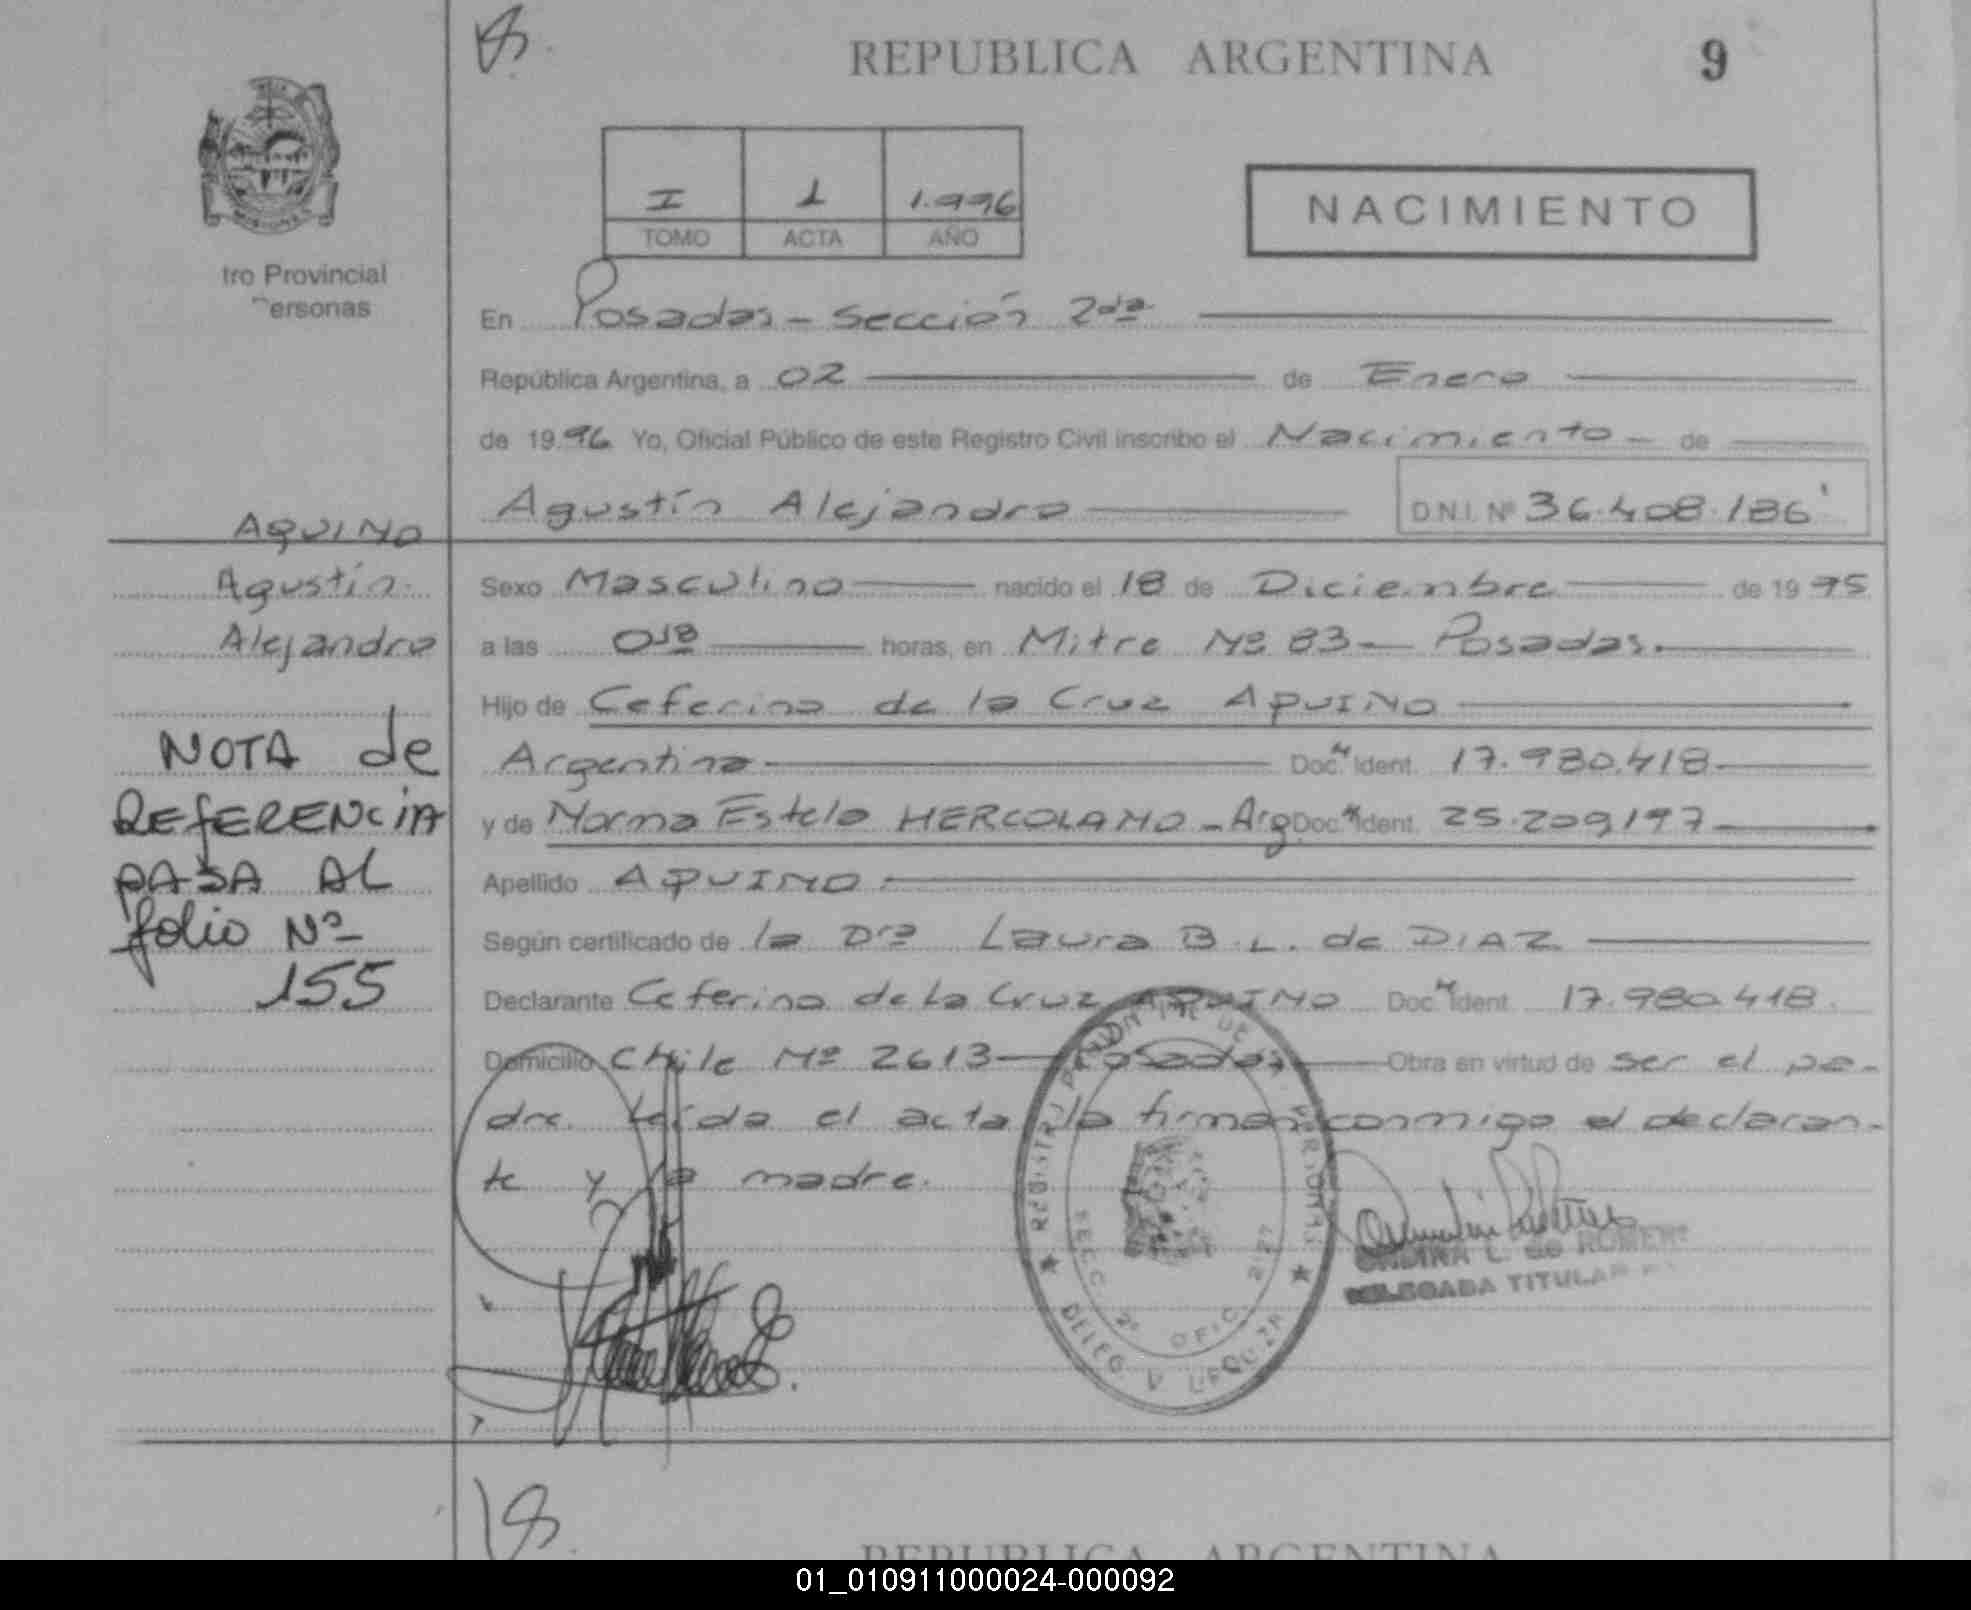 REPUBLICA ARGENTINA 9
I 1 1.996
TOMO ACTA AÑO
NACIMIENTO
tro Provincial
ersonas
En Posadas - Sección 2da
República Argentina, a 02 de Enero
de 1996 Yo, Oficial Público de este Registro Civil inscribo el Nacimiento - de
Agustín Alejandro D.N.I. Nº 36.408.186
AQUINO
Agustín
Alejandro
Sexo Masculino nacido el 18 de Diciembre de 1995
a las 018 horas, en Mitre Nº 83 - Posadas.
Hijo de Ceferino de la Cruz AQUINO
Argentina Doc. Ident. 17.980.418
y de Norma Estela HERCOLANO - Arg Doc. Ident. 25.209,197
Apellido AQUINO
Según certificado de la Dra Laura B. L. de DIAZ
Declarante Ceferino de La Cruz AQUINO Doc. Ident. 17.980.418.
Domicilio Chile Nº 2613 - Posadas Obra en virtud de ser el pa-
dre. Leída el acta la firman conmigo el declaran-
te y la madre.
NOTA de
REFERENCIA
PASA AL
folio Nº
155
ONDINA L. de ROMERO
DELEGADA TITULAR
REPUBLICA ARGENTINA
01_010911000024-000092